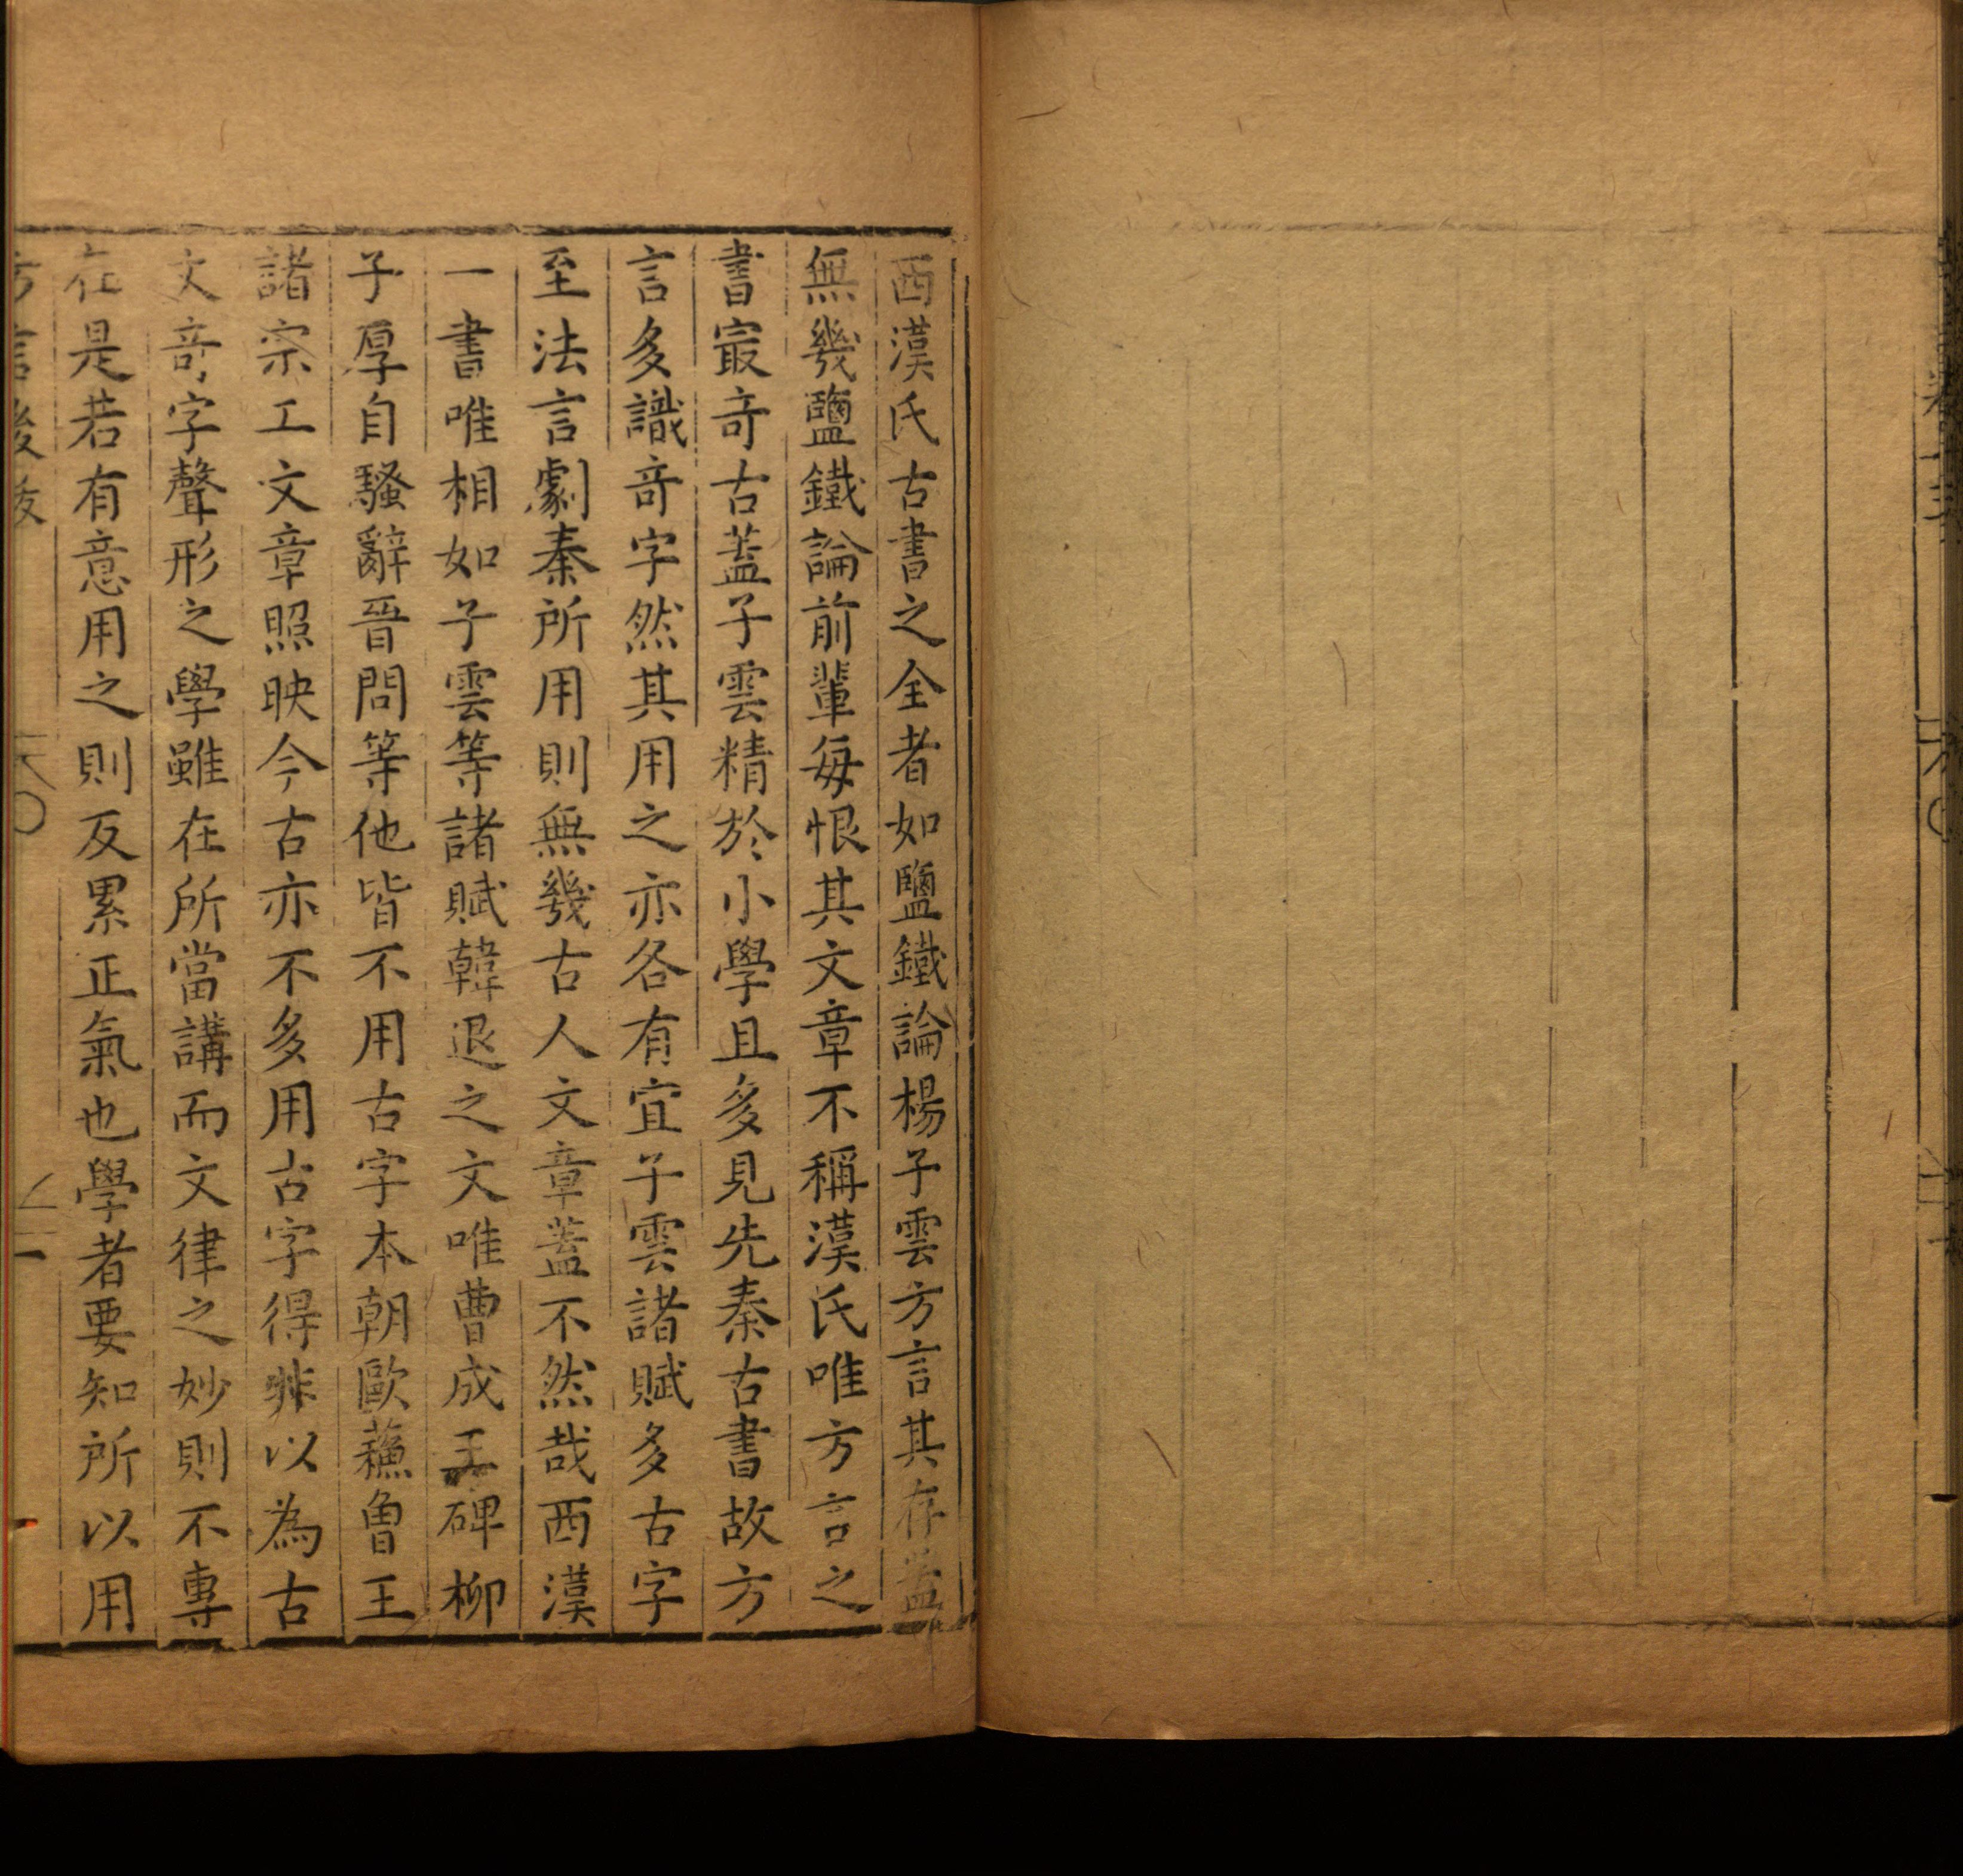 西漢氏古書之全者如鹽鐵論楊子雲方言其存蓋
無幾鹽鐵論前輩每恨其文章不稱漢氏唯方言之
書㝡竒古蓋子雲精於小學且多見先秦古書故方
言多識竒字然其用之亦各有宜子雲諸賦多古字
至法言劇秦所用則無幾古人文章蓋不然哉西漢
一書唯相如子雲等諸賦韓退之文唯曹成王碑柳
子厚自騷辭晉問等他皆不用古字本朝歐蘓曾王
諸宗工文章照映今古亦不多用古字得非以為古
文竒字聲形之學雖在所當講而文律之妙則不專
在是若有意用之則反累正氣也學者要知所以用
方言後㪅